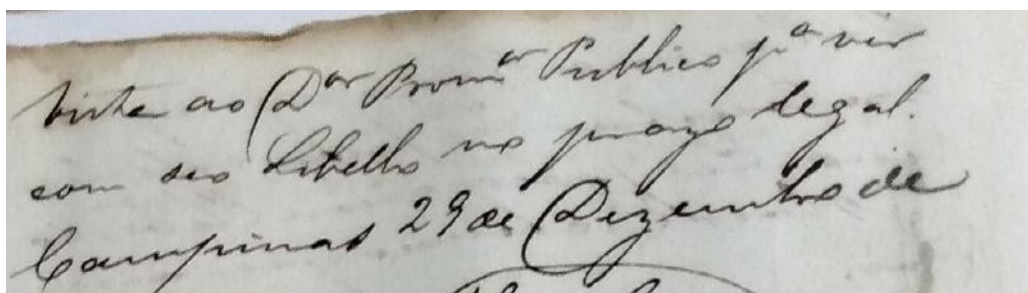 Vista ao Dor Promor Publico pa vir
com seo Libello no prazo legal.
Campinas 29 de Dezembro de